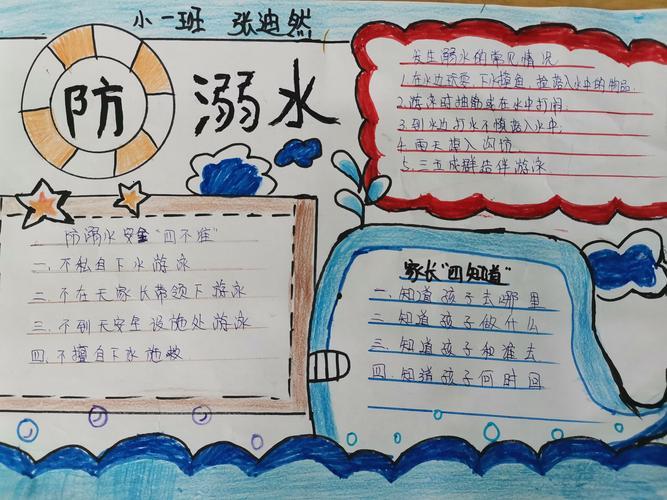 小一班 张迪然
防溺水
发生溺水的常见情况
1.在水边玩耍.下水摸鱼,捡落入水中的物品.
2.游泳时抽筋或在水中打闹.
3.到水边打水不慎落入水中;
4.雨天掉入沟坑.
5.三五成群结伴游泳
防溺水安全"四不准"
一.不私自下水游泳
二.不在天家长带领下游泳
三.不到天安全设施处游泳
四.不擅自下水施救
家长"四知道"
一.知道孩子去哪里
二.知道孩子做什么
三.知道孩子和谁去
四.知道孩子何时回